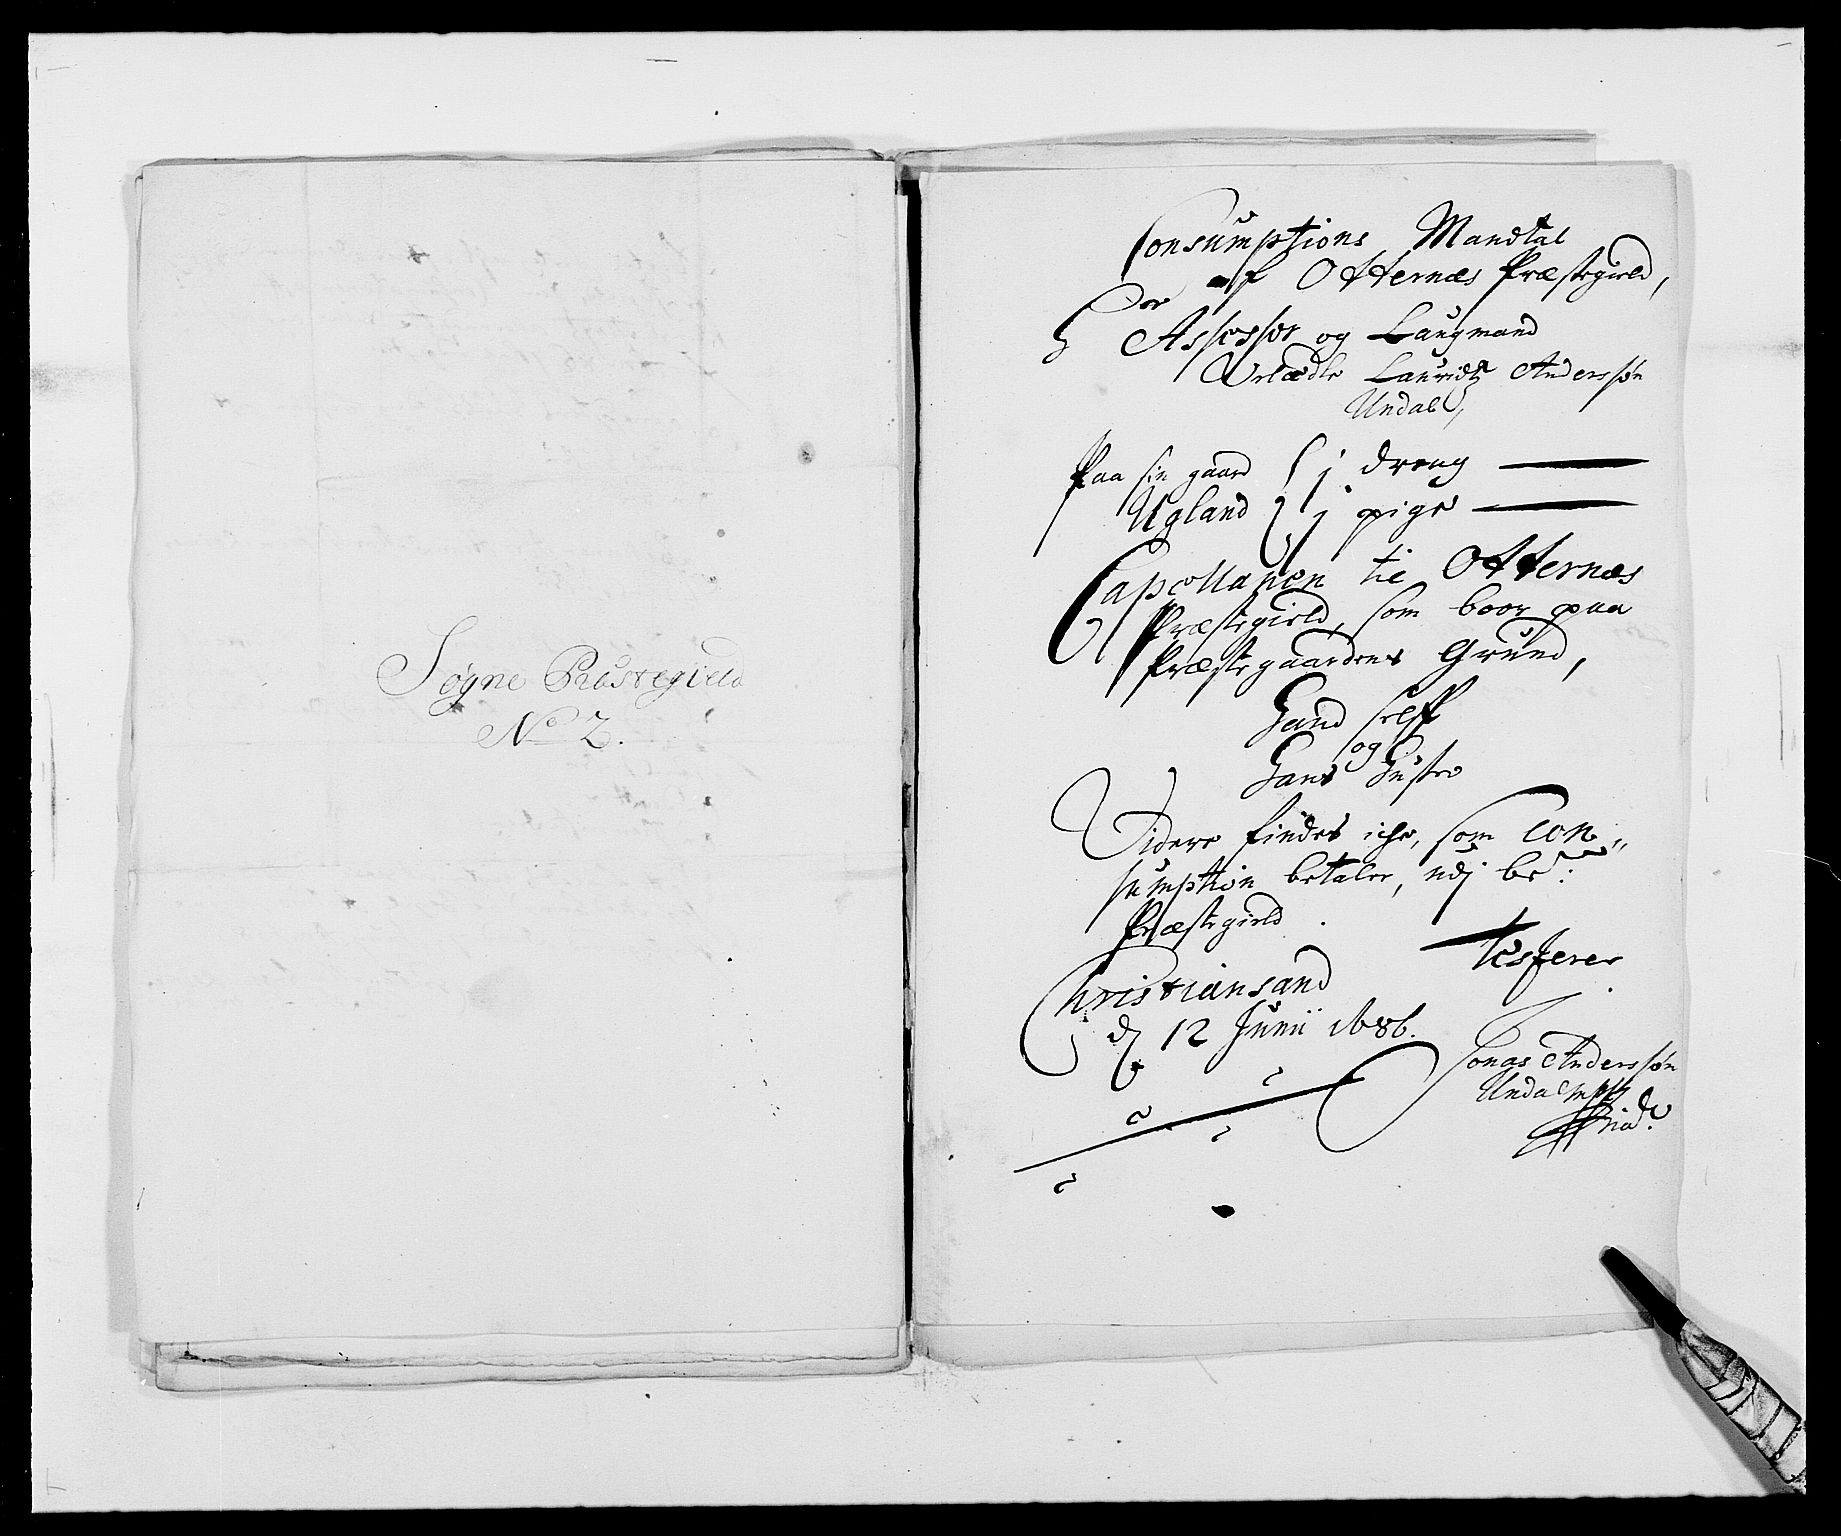 Søgne Præstegield
No 2.
Consumptions Mandtal
af Otternæs Præstegield,
Hr
Assessor og Laugmand
Velædle Lauridtz Anderssøn
Undal,
Paa sin gaard { j dreng
Ugland { j pige
Capellanen til Otternæs
Præstegield, som boer paa
Præstegaardens Grund,
Hand selff
og
Hans Hustro
Videre findes iche, som Con„
sumption betaler, udj be:te
Præstegield.
Testerer
Christiansand
dj 12 Junii 1686.
Jonas Anderssøn
Undal mpp